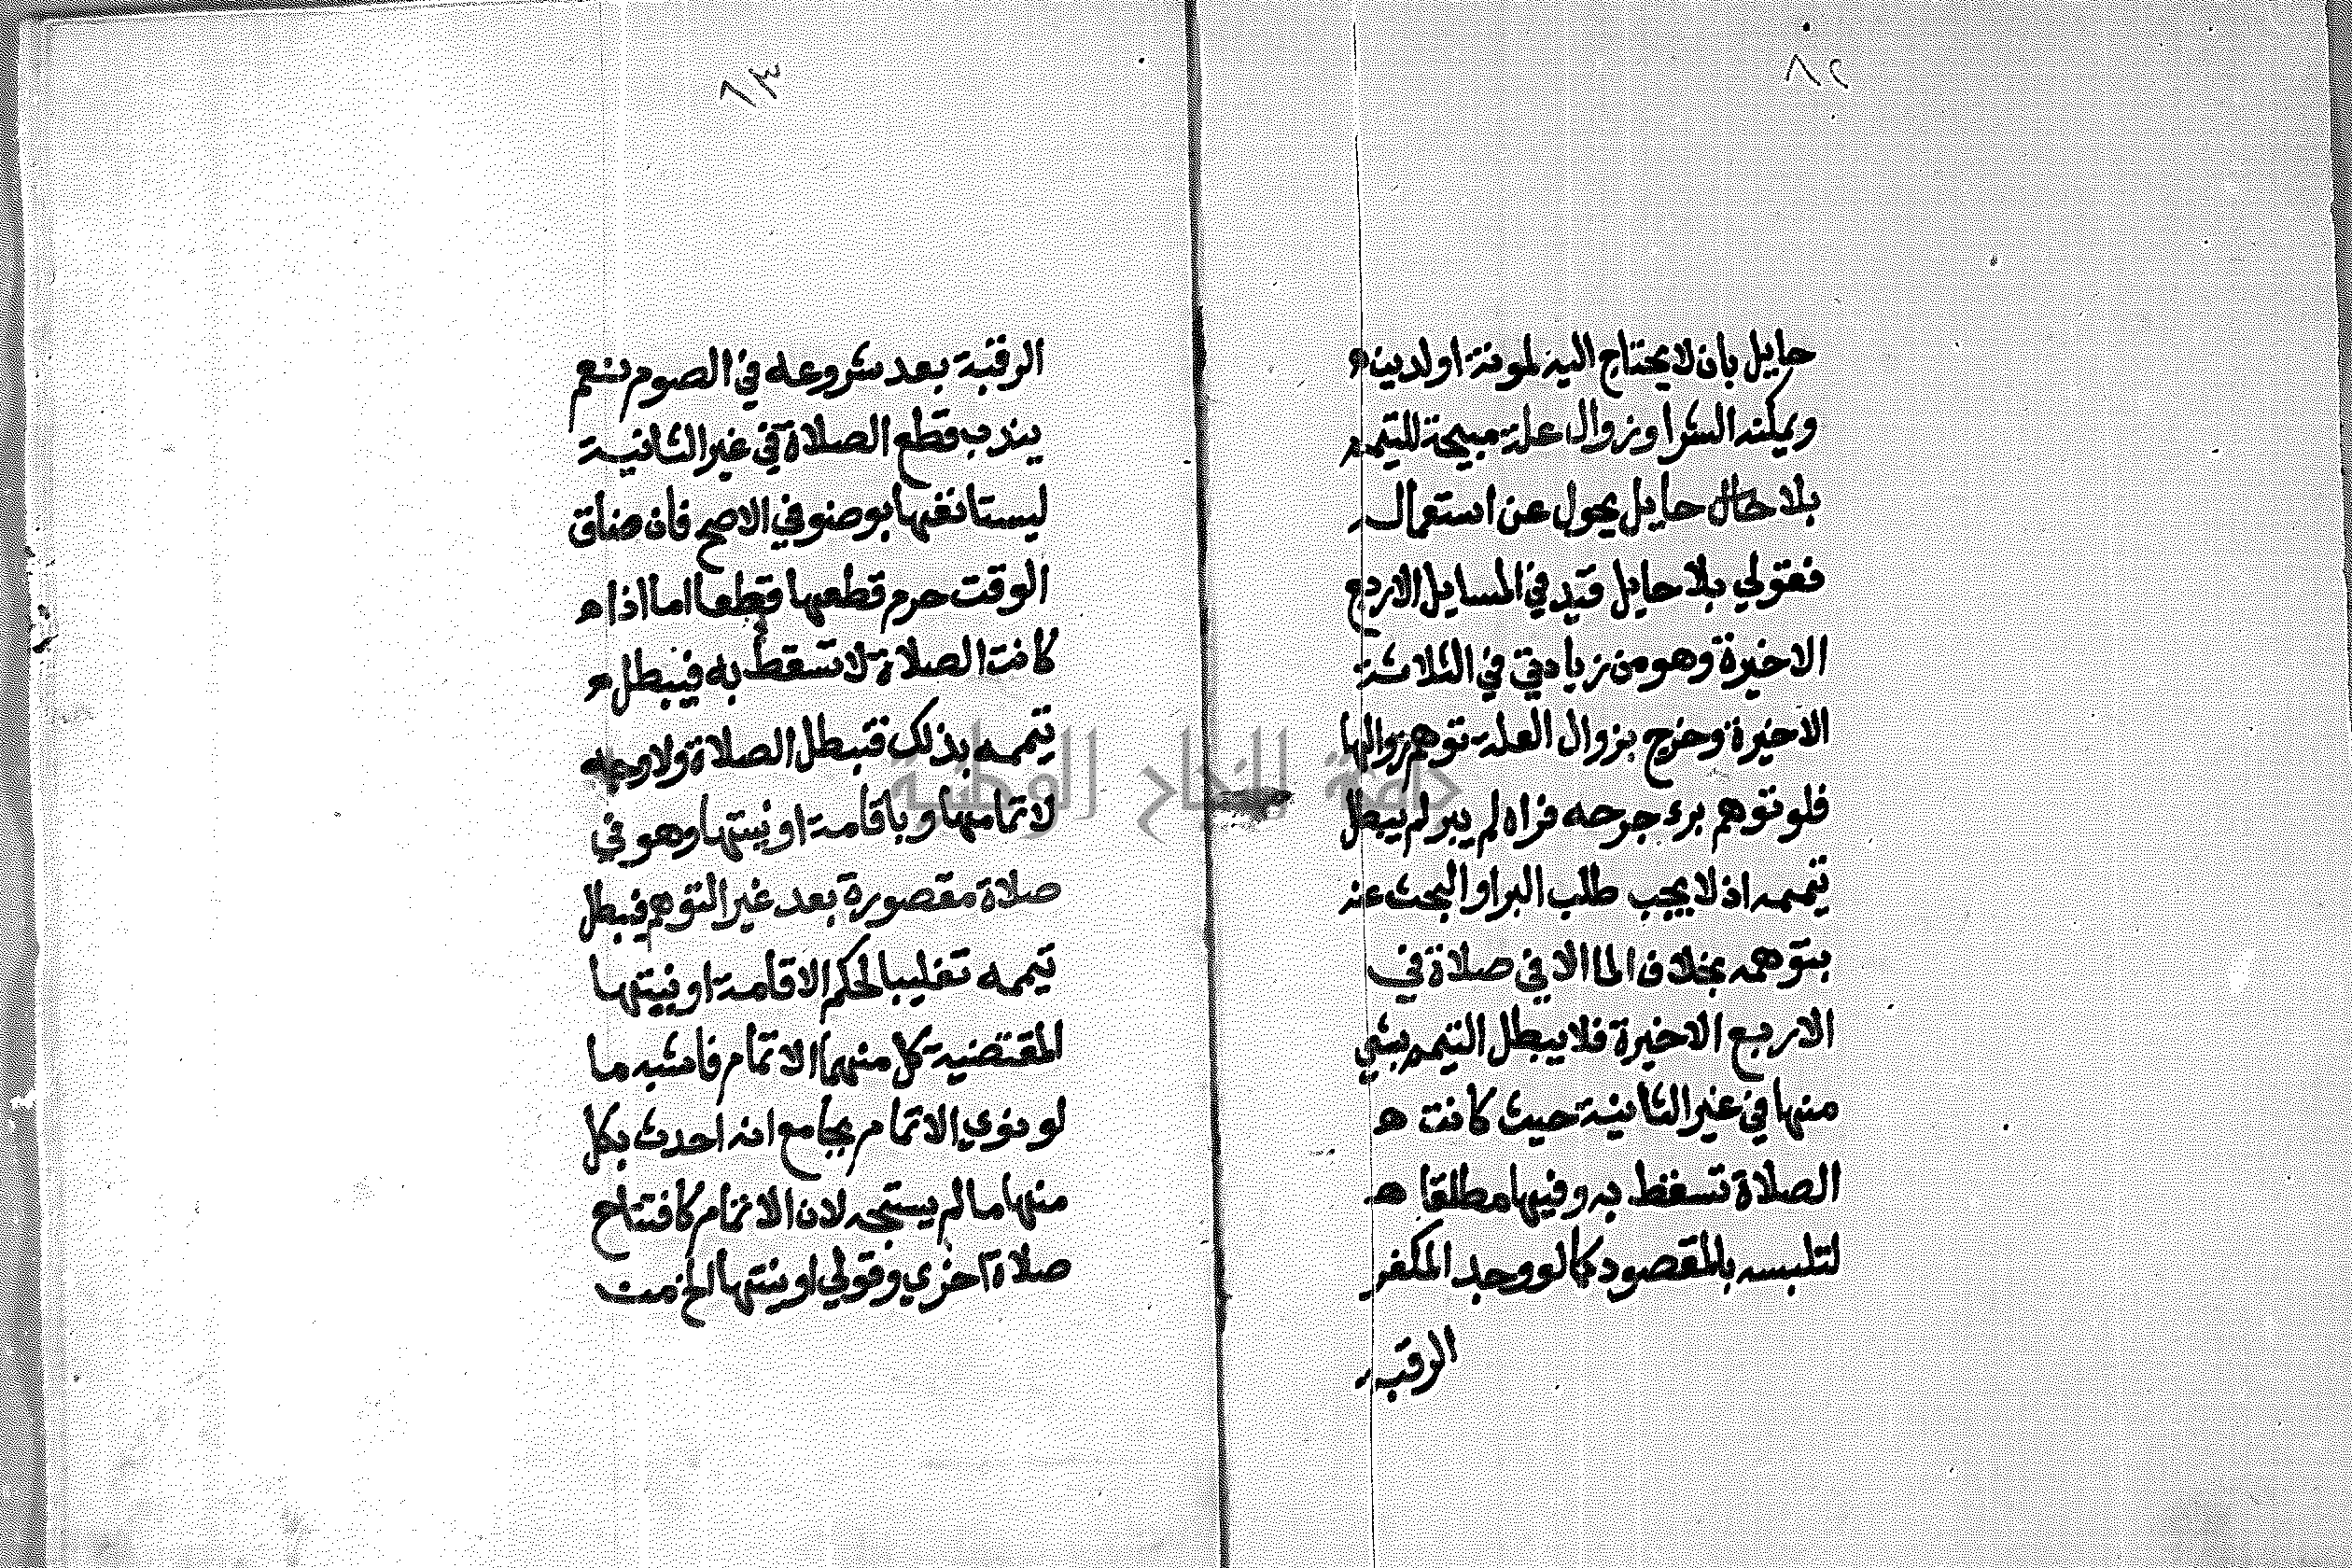 ٨٢
حايل بان لا يحتاج اليه لمونة او لدينه
ويمكنه الشرا وزوال علة مبيحة للتيمم
بلا حال حايل يحول عن استعمال
فقولي بلا حايل قيد في المسايل الاربع
الاخيرة وهو من زيادتي في الثلاثة
الاخيرة وخرج بزوال العلة توهم زوالها
فلو توهم برء جرحه فراه لم يبر لم يبطل
تيممه اذ لا يجب طلب البرا والبحث عنه
بتوهمه بخلاف الما الا في صلاة في
الاربع الاخيرة فلا يبطل التيمم بشي
منها في غير الثانية حيث كانت ه
الصلاة تسقط به وفيها مطلقا ه
لتلبسه بالمقصود كما لو وجد المكفر
الرقبة
٨٣
الرقبة بعد شروعه في الصوم نعم
يندب قطع الصلاة في غير الثانية
ليستانفها بوضو في الاصح فان ضاق
الوقت حرم قطعها قطعا اما اذا ه
كانت الصلاة لا تسقط به فيبطل
تيممه بذلك فتبطل الصلاة ولا وجه
لاتمامها وباقامة او نيتها وهو في
صلاة مقصورة بعد غير التوهم فبطل
تيممه تغليبا لحكم الاقامة او نيتها
المقتضية كل منهما الاتمام فاشبه ما
لو نوي الاتمام بجامع انه احدث بكل
منها ما لم يستبحه لان الاتمام كافتتاح
صلاة اخري وقولي او نيتها الخ من